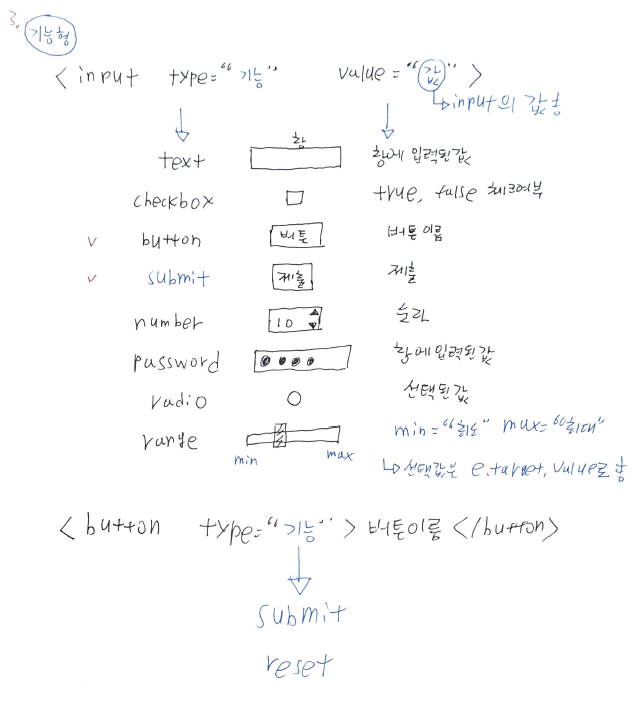 3.
기능형
<input type="기능" value="값">
↳input의 값 홍
창
text 창에 입력된값
checkbox true, false 체크여부
v button 버튼 버튼이름
v submit 제출 제출
number 10 숫자
password 창에 입력된값
radio 선택된값
range min max min="최소" max="최대"
↳선택값은 e.target.value로
<button type="기능">버튼이름</button>
submit
reset